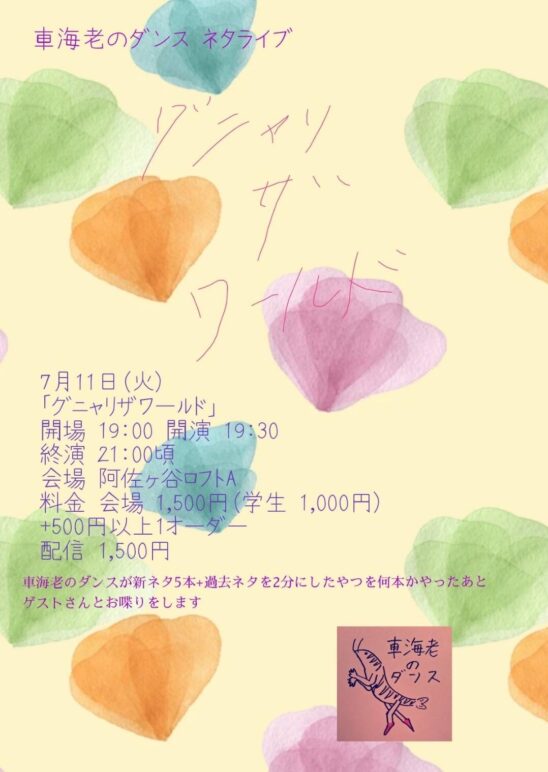 車海老のダンス ネタライブ
グニャリ
ザ
ワールド
7月11日(火)
「グニャリザワールド」
開場 19:00 開演 19:30
終演 21:00頃
会場 阿佐ヶ谷ロフトA
料金 会場 1,500円(学生 1,000円)
+500円以上1オーダー
配信 1,500円
車海老のダンスが新ネタ5本+過去ネタを2分にしたやつを何本かやったあと
ゲストさんとお喋りをします
車海老
の
ダンス